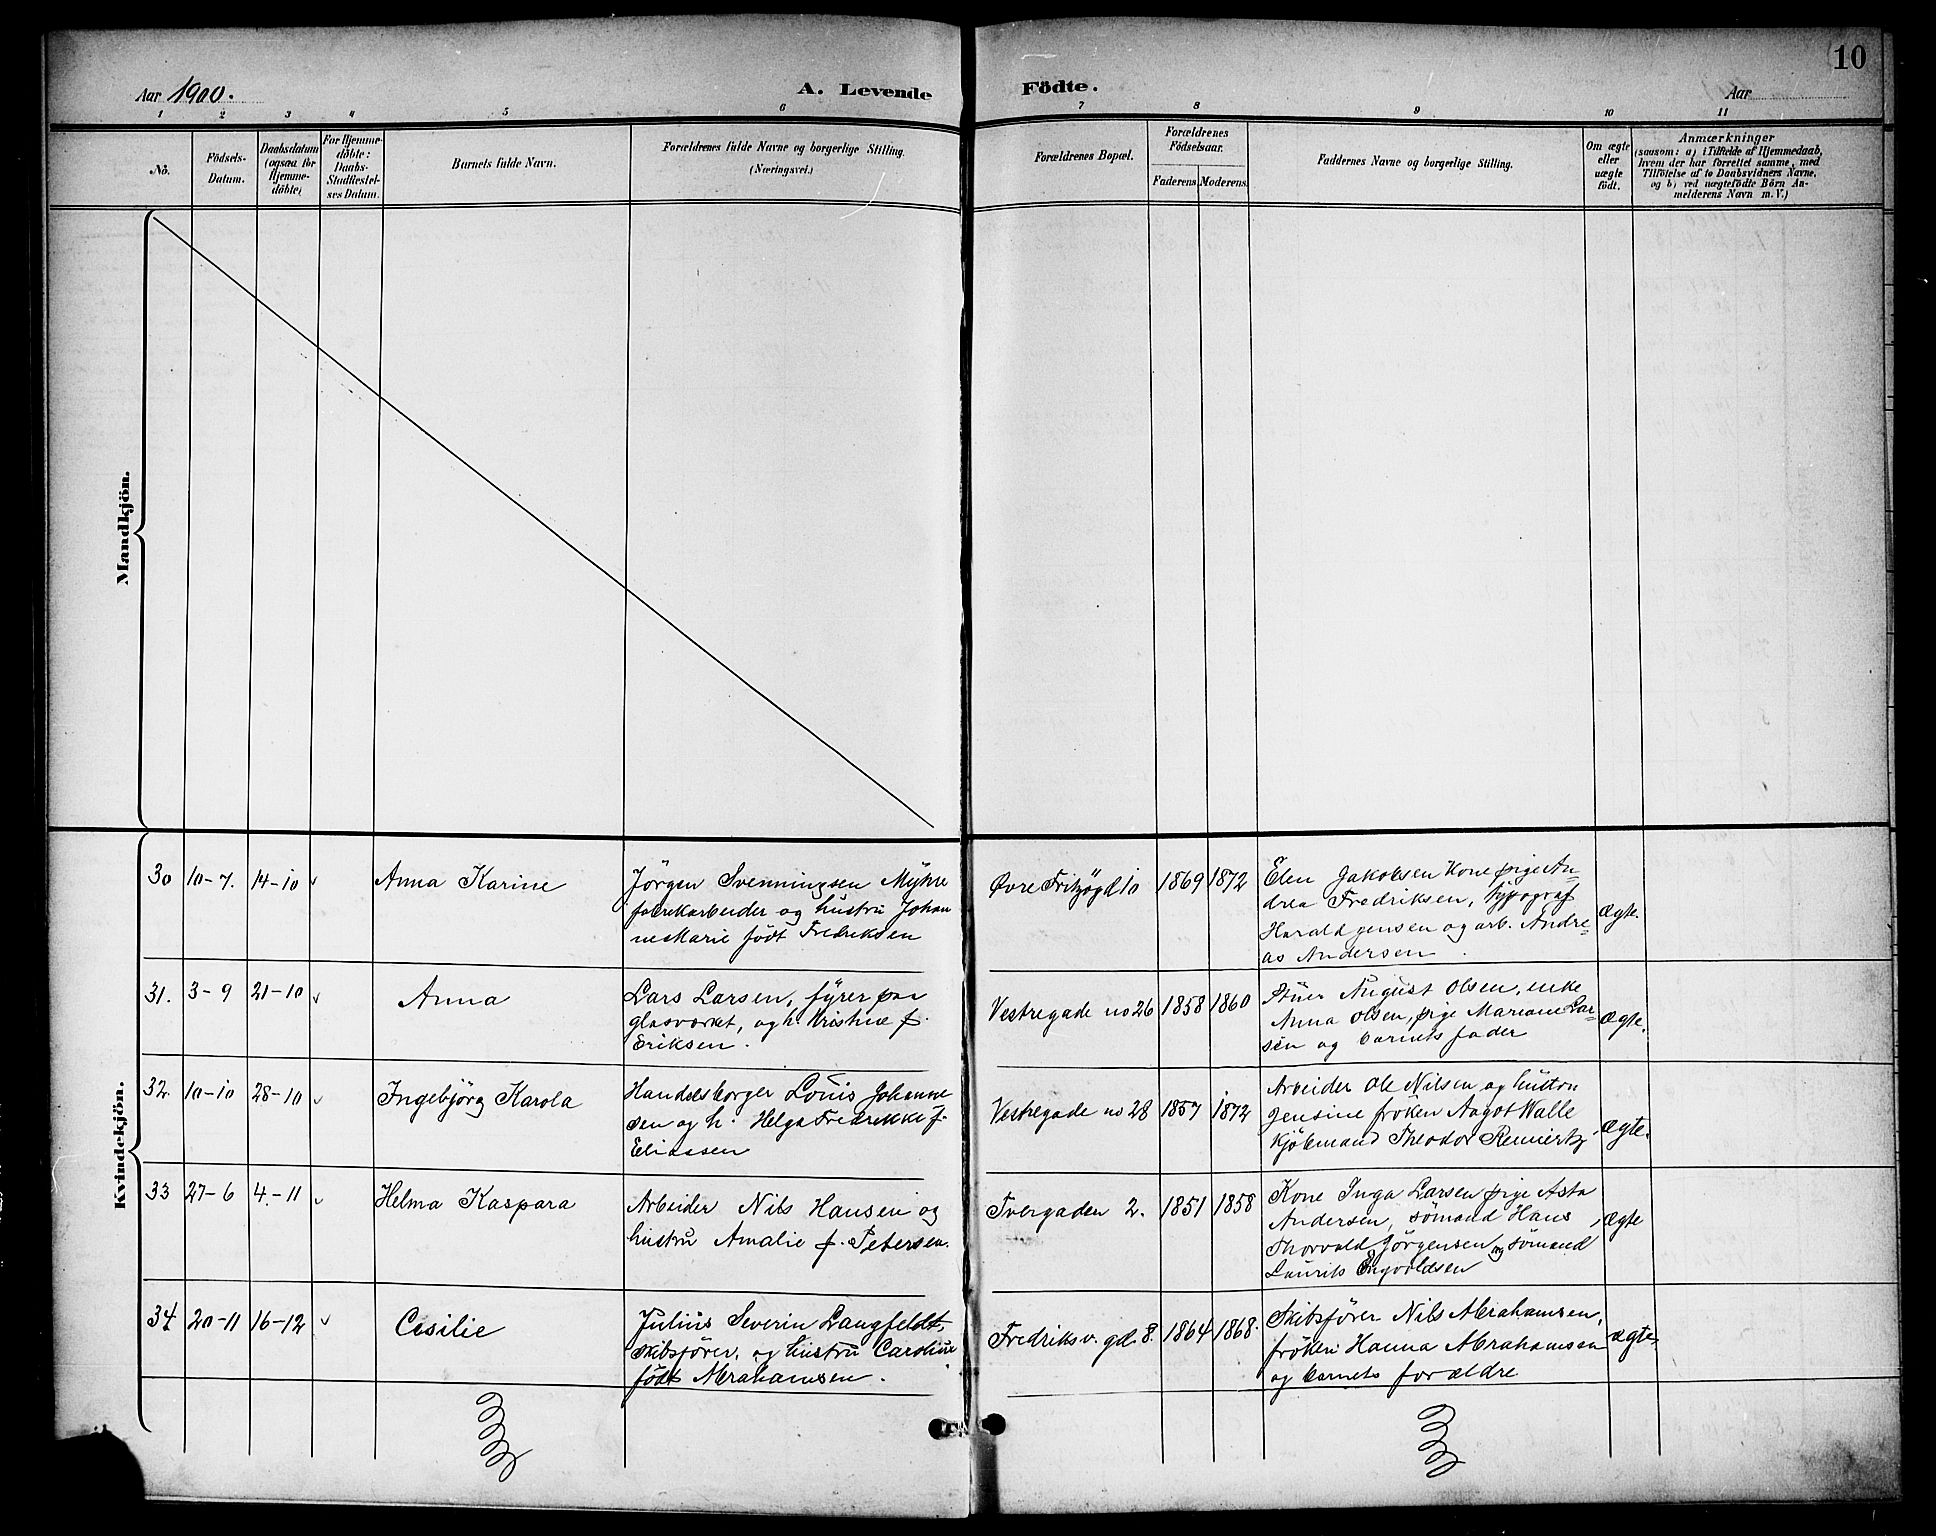 10
Aar 1900.
A. Levende Födte.
Aar
1 2 3 4 5 6 7 8 9 10 11
No.
Födsels-
Datum.
Daabsdatum
(ogsaa for
Hjemme-
döbte)
For Hjemme-
döbte:
Daabs-
Stadfæstel-
ses Datum.
Barnets fulde Navn.
Forældrenes fulde Navne og borgerlige Stilling.
(Næringsvei.)
Forældrenes Bopæl.
Forældrenes
Födselsaar.
Faderens. Moderens.
Faddernes Navne og borgerlig Stilling.
Om ægte
eller
uægte
födt.
Anmærkninger
(saasom: a) i Tilfælde af Hjemmedaab,
hvem der har forrettet samme, med
Tilföielse af to Daabsvidners Navne,
og b) ved uægtefödte Börn An-
melderens Navn m. V.)
Mandkjön.
Kvindekjön.
30 10-7. 14-10 Anna Karine
Jörgen Svenningsen Myhre
fabrikarbeider og hustru Johan
ne Marie födt Fredriksen
Øvre Fritzögd 10 1869 1872
Elen Jakobsen Kone pige An-
drea Fredriksen, typograf
Harald Jensen og arb. Andre-
as Andersen
Ægte.
31. 3-9 21-10 Anna
Lars Larsen, fyrer paa
glasværket, og h. Kristine f.
Eriksen.
Vestregade no 26 1858 1860
August Olsen, enke
Anna Olsen, pige Mariane Lar-
sen og barnets fader
Ægte.
32. 10-10 28-10 Ingebjörg Karola
Handelsborger Louis Johanne
sen og h. Helga Fredrikke f.
Eliassen
Vestregade no 28 1857 1872
Arbeider Ole Nilsen og hustru
Jensine fröken Aagot Walle
Kjöbmand Theodor Reinertz
Ægte.
33 27-6 4-11 Helma Kaspara
Arbeider Nils Hansen og
hustru Amalie f. Petersen.
Tvergaden 2. 1851 1858
Kone Inga Larsen pige Asta
Andersen, sömand Hans
Thorvald Jörgensen og sömand
Laurits Engvoldsen
Ægte
34 20-11 16-12 Cesilie
Julius Severin Langfeldt,
skibsförer, og hustru Caroline
födt Abrahamsen.
Fredriksv. gd 8. 1864 1868.
Skibsförer Nils Abrahamsen,
fröken Hanna Abrahamsen
og barnets forældre
Ægte.